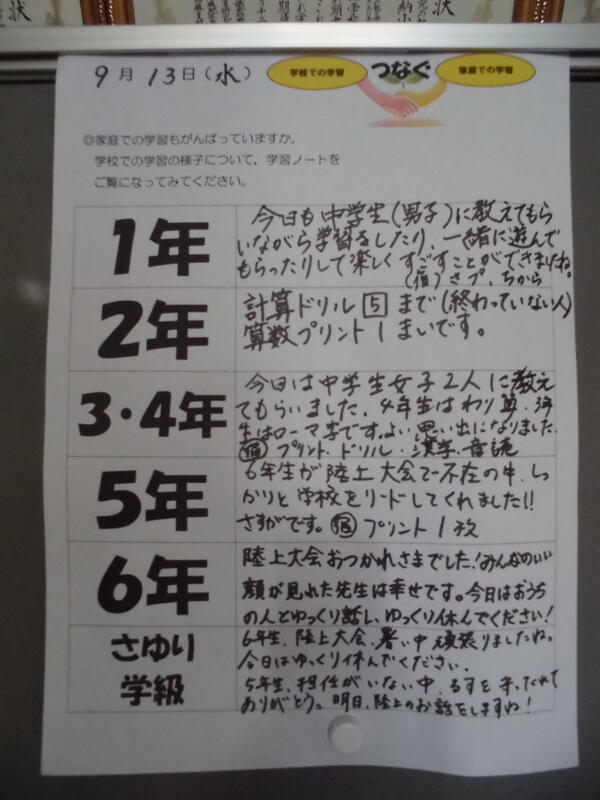 9月13日(水)
学校での学習 つなぐ 家庭での学習
◎家庭での学習もがんばっていますか。
学校での学習の様子について、学習ノートを
ご覧になってみてください。
1年
今日も中学生(男子)に教えてもら
いながら学習をしたり、一緒に遊んで
もらったりして楽しくすごすことができましたね。
(宿)さプ、ちから
2年
計算ドリル5まで(終わっていない人)
算数プリント1まいです。
3・4年
今日は中学生女子2人に教え
てもらいました。4年生はわり算、3年
生はローマ字です。よい思い出になりました。
宿 プリント・ドリル・漢字・音読
5年
6年生が陸上大会で不在の中、しっ
かりと学校をリードしてくれました!!
さすがです。宿プリント1枚
6年
陸上大会おつかれさまでした!みんなのいい
顔が見れた先生は幸せです。今日はおうち
の人とゆっくり話し、ゆっくり休んでください!
さゆり
学級
6年生、陸上大会、暑い中頑張りましたね。
今日はゆっくり休んでください。
5年生、担任がいない中、るすを守ってくれて
ありがとう。明日、陸上のお話をしますね!